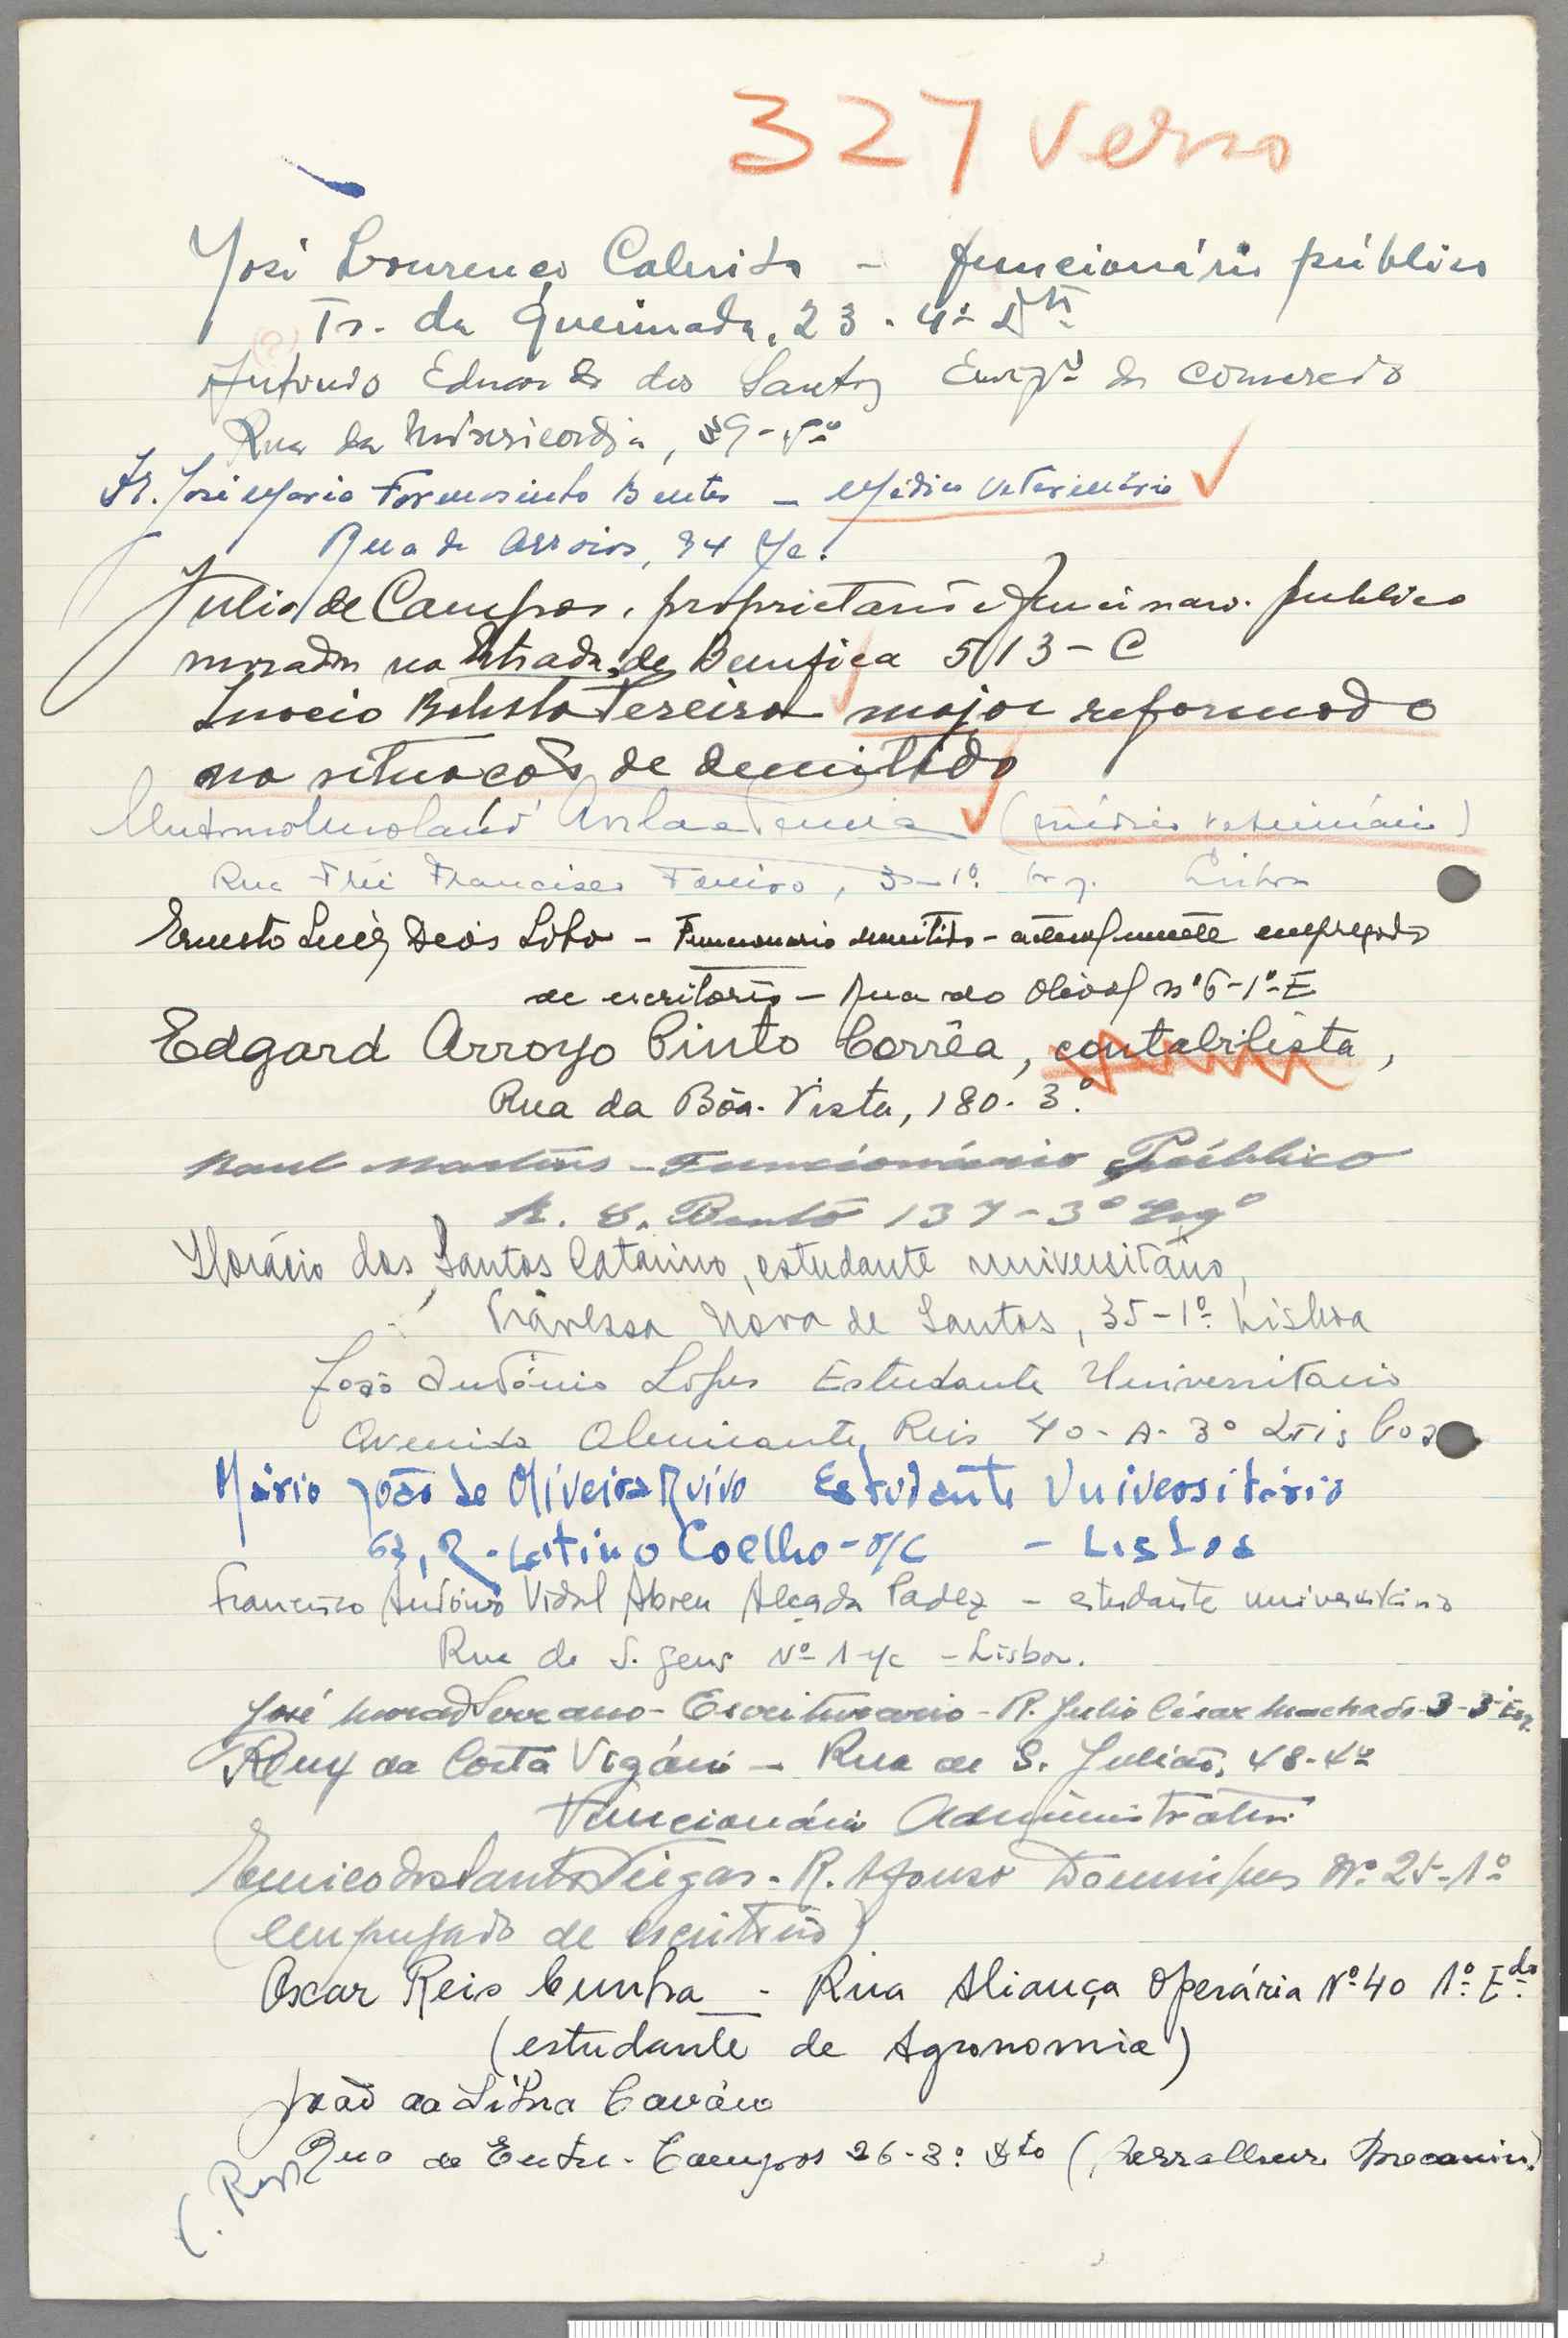 327 verso
José Lourenço Calisto - funcionário público
Tr. da Queimada, 23 - 4º Dtº
António Eduardo dos Santos Empº do comercio
Rua da Misericordia,
Dr. José Maria Formosinho Bentes - Médico Veterinário
Rua de Arroios, 94 r/c.
Julio de Campos, proprietario e funcionario publico
morador na Estrada de Bemfica 513-C
Inocio Batista Pereira major reformado
na situação de demitido
(médico veterinário)
Rua Frei Francisco Foreiro, 3-1º Esq. Lisboa
Ernesto Luis Deos Lobo - Funcionario demitido - actualmente empregado
de escritório - Rua do Olival nº 6-1º-E
Edgard Arroyo Pinto Corrêa, contabilista,
Rua da Bôa-Vista, 180-3.º
Raul Martins - Funcionário Público
R. S. Bento 137-3º Esqº
Horácio dos Santos Catarino, estudante universitário,
Travessa Nova de Santos, 35-1º Lisboa
João António Lopes Estudante Universitario
Avenida Almirante Reis 40-A-3º Lisboa
Mário João de Oliveira Ruivo Estudante Universitário
63, R. Latino Coelho - r/c - Lisboa
Francisco António Vidal Abreu Alçada Padez - estudante universitário
Rua de S. Gens Nº 1-r/c - Lisboa.
José Morad Serrano - Escriturario - R. Julio César Machado 3-3º Esq.
Ruy da Costa Vigário - Rua de S. Julião, 48-4º
Funcionário Administrativo
Eurico dos Santos Viegas - R. Afonso Domingues Nº 25-1º
(empregado de escritório)
Oscar Reis Cunha - Rua Aliança Operária Nº 40 1º Edo
(estudante de Agronomia)
João da Silva Cavaco
Rua de Entre-Campos 26-3º dto (Serralheiro Mecanico)